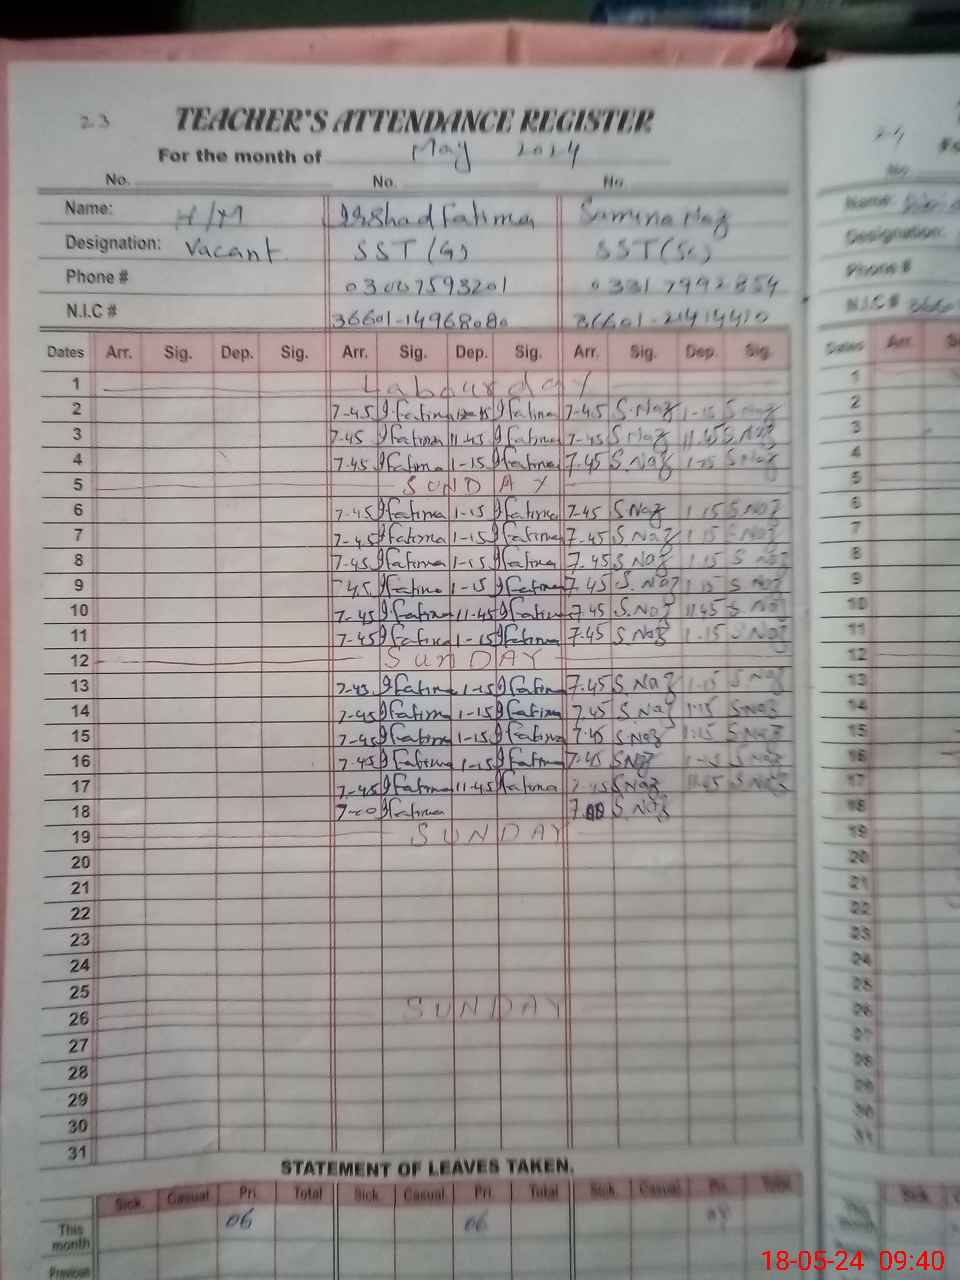 23
TEACHER'S ATTENDANCE REGISTER
For the month of May 2024
No. No. No.
Name: H/M Irshad Fatima Samina Naz
Designation: Vacant SST (G) SST (Sc)
Phone # 03007593201 0331 7992854
N.I.C # 36601-1496808 36601-2414410
Dates Arr. Sig. Dep. Sig. Arr. Sig. Dep. Sig. Arr. Sig. Dep. Sig.
1 Labour day
2 7-45 I.Fatima I Fatima 7-45 S.Naz 1-15 S Naz
3 7-45 I Fatima 11-45 I Fatima 7-45 S Naz 11.45 S.Naz
4 7.45 I Fatima 1-15 I Fatima 7.45 S.Naz 1-15 S Naz
5 SUNDAY
6 7-45 I Fatima 1-15 I Fatima 7-45 S Naz 1.15 S.Naz
7 7-45 I Fatima 1-15 I Fatima 7-45 S Naz 1.15 S Naz
8 7-45 I Fatima 1-15 I Fatima 7.45 S.Naz 1.15 S Naz
9 7.45 I Fatima 1-15 I Fatima 7.45 S.Naz 1.15 S Naz
10 7-45 I Fatima 11-45 I Fatima 7.45 S.Naz 11.45 S.Naz
11 7-45 I Fatima 1-15 I Fatima 7.45 S Naz 1-15 S Naz
12 SunDAY
13 I Fatima 1-15 I Fatima 7.45 S.Naz 1-15 S.Naz
14 7-45 I Fatima 1-15 I Fatima 7.45 S.Naz 1.15 S.Naz
15 7-45 I Fatima 1-15 I Fatima 7.45 S.Naz 1.15 S.Naz
16 7.45 I Fatima 1-15 I Fatima 7.45 S Naz 1-15 S Naz
17 7-45 I Fatima 11-45 I Fatima 7-45 S Naz 11.45 S Naz
18 I Fatima 7.00 S.Naz
19 SUNDAY
20
21
22
23
24
25
26 SUNDAY
27
28
29
30
31
STATEMENT OF LEAVES TAKEN.
Sick Casual Pri. Total Sick Casual Pri. Total Sick Casual Pri. Total
This month 06 06
Previous
24
No
Name:
Designation:
Phone #
N.I.C #
Dates Arr.
1
2
3
4
5
6
7
8
9
10
11
12
13
14
15
16
17
18
19
20
21
22
23
24
25
26
27
28
29
30
31
Sick
18-05-24 09:40